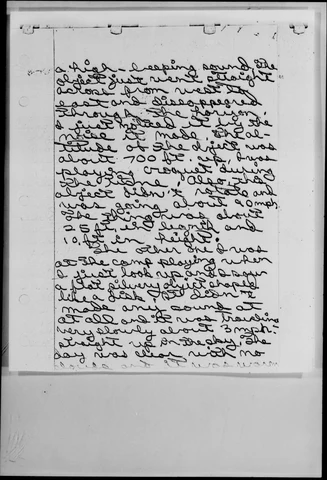 a high-beeping sound. The
object just went straight
across from west to
east and disappeared
through the horizon
I just noticed it by the
noise it made. The al-
titude of the object was
about 700 ft. up. I was
playing croquet during
the time. Also, the
object didn't
was going about 90 mph.
The thing was about
25 ft. in length and
10 ft. in height.
The other one I was
at the camp playing when
I just look up and saw
a flat silvery object shaped
like a disk. It didn't
made any sound at
at all and it was traveling
very slowly about 3 mph.
straight up in the sky. The
day was clear with no
clouds and it was warm